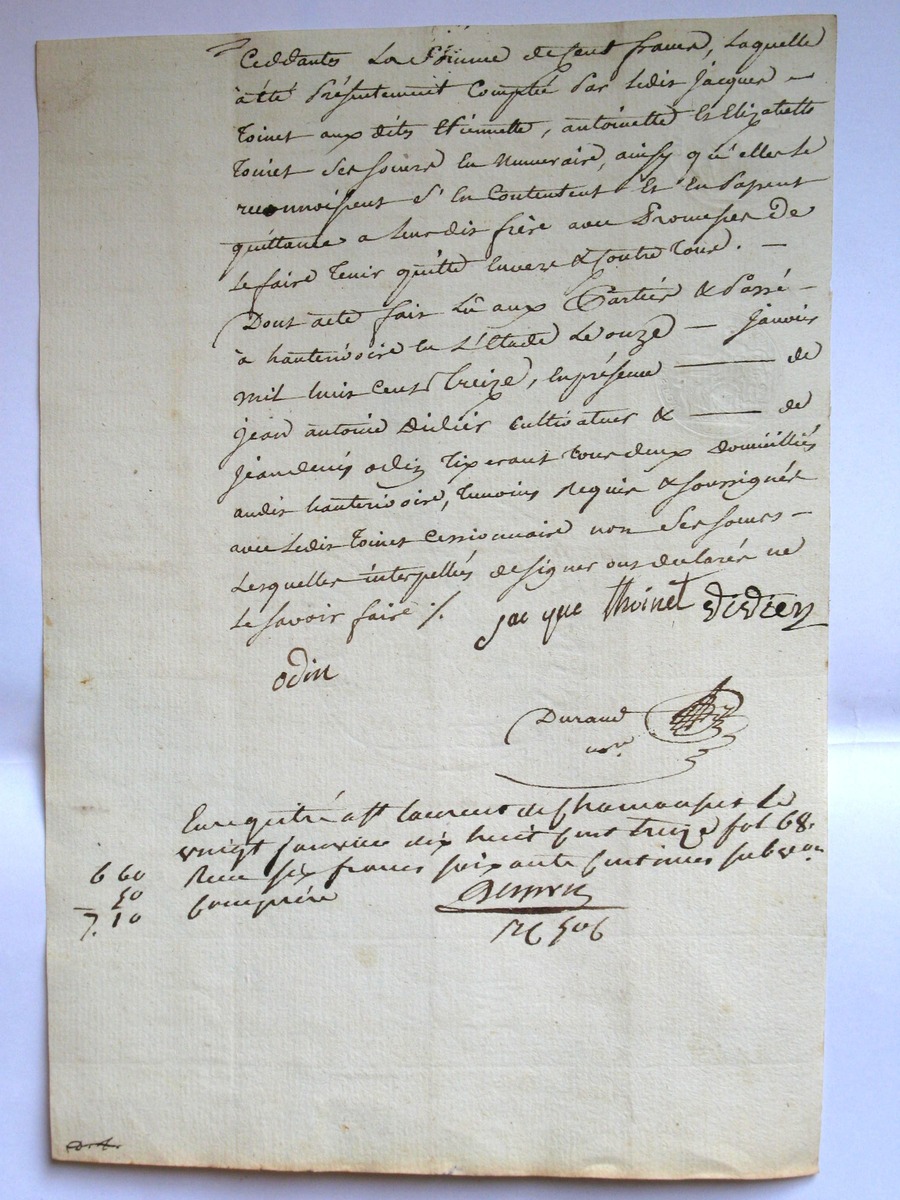 Ceddantes La Somme de Cent francs, Laquelle
à été Présentement Comptée Par Ledit Jacques
Toinet aux dites Etiennette, antoinette Et Elizabette
Toinet Ses Soeurs En Numeraire, ainsy qu'elles Le
reconnoissent S'En Contentent Et En Passent
quittance a Leur dit frère avec Promesses De
Le faire Tenir quitte Envers & Contre Tous. —
Dont acte fait Lû aux Parties & Passé —
à hauterivoire En L'Etude Le onze — janvier
mil huit Cent Treize, En présence — de
jean antoine Didier Cultivateur & — de
jean denis odin Tixerant tous deux domiciliés
audit hauterivoire, Temoins Requis & Soussignés
avec Ledit Toinet Cessionnaire non Ses Soeurs —
Lesquelles interpellées de signer ont declarés ne
Le savoir faire ./.
jacque thoinet Didier
odin
Durand
nore
Enregistré a St laurent de Chamousset le
vingt janvier dix huit Cent treize fol 68.
6 60 Recu six francs soixante Centimes subvon
50 Comprise
7.10